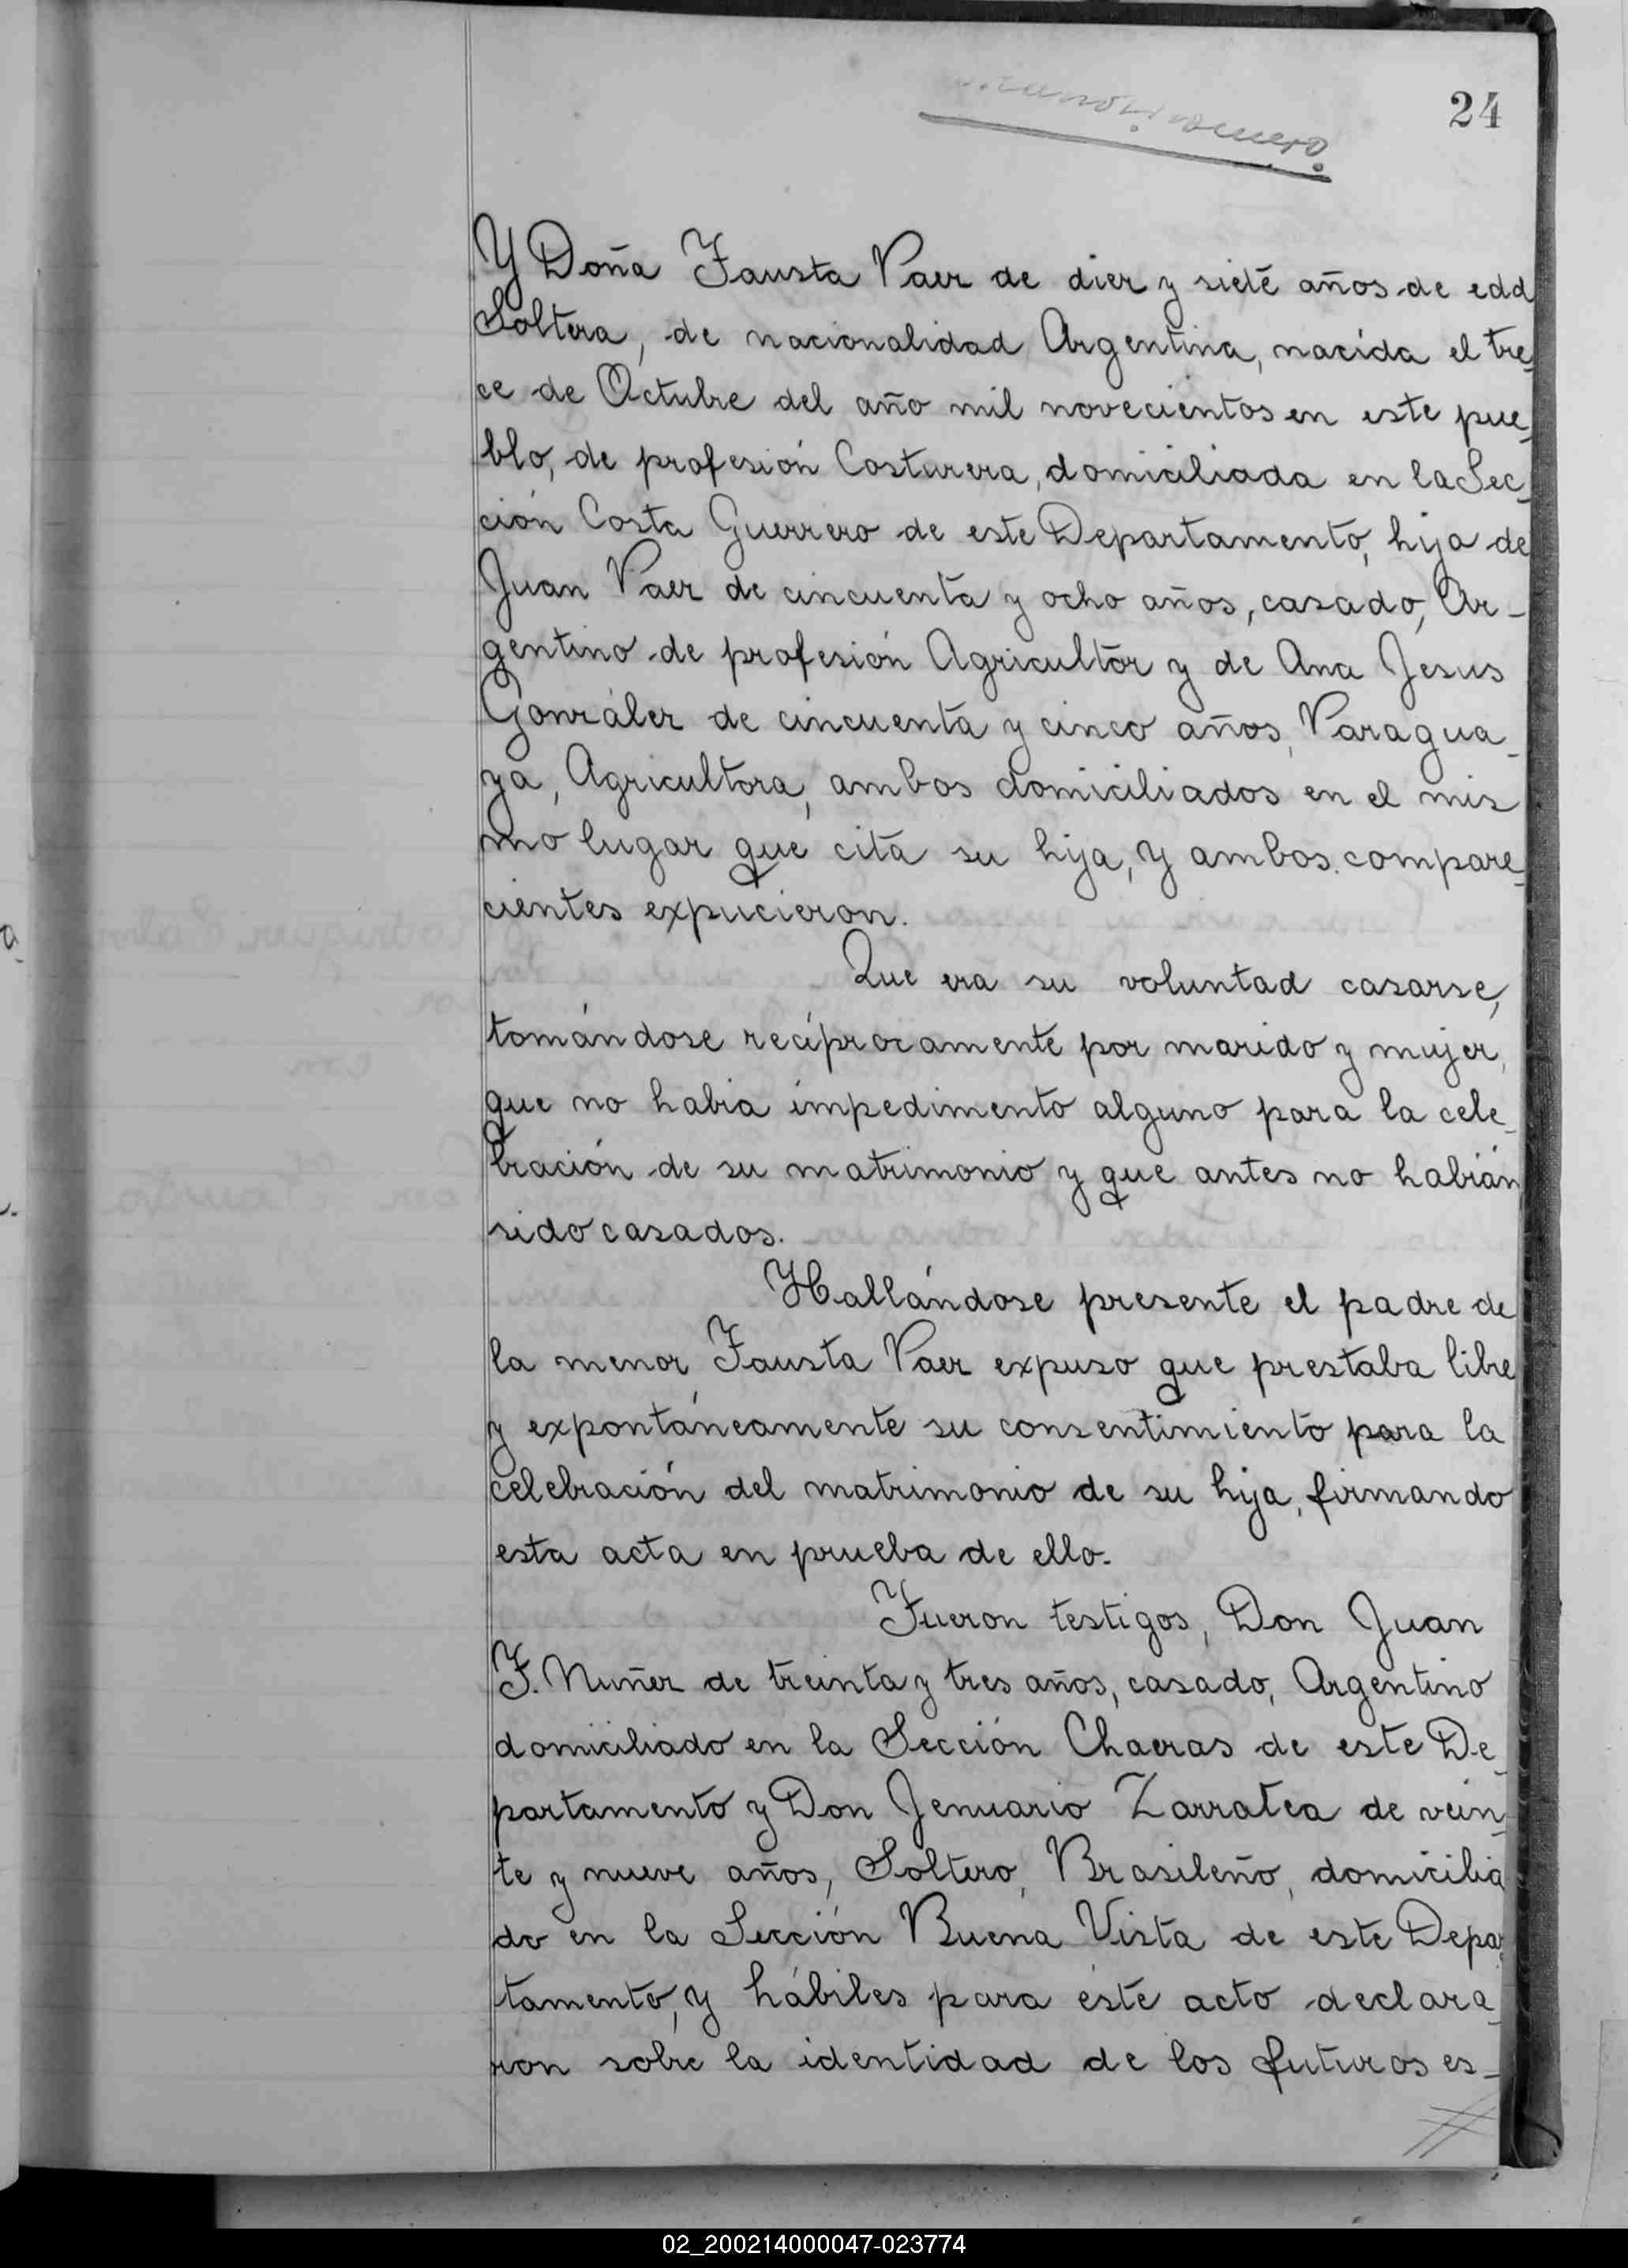 24
Y Doña Fausta Paez de diez y siete años de edd
Soltera, de nacionalidad Argentina, nacida el tre_
ce de Octubre del año mil novecientos en este pue_
blo, de profesión Costurera, domiciliada en la Sec_
ción Costa Guerrero de este Departamento, hija de
Juan Paez de cincuenta y ocho años, casado, Ar_
gentino de profesión Agricultor y de Ana Jesus
González de cincuenta y cinco años, Paragua_
ya, Agricultora, ambos domiciliados en el mis
mo lugar que cita su hija, y ambos compare_
cientes expucieron.
Que era su voluntad casarse,
tomándose recíprocamente por marido y mujer,
que no habia impedimento alguno para la cele_
bración de su matrimonio y que antes no habián
sido casados.
Hallándose presente el padre de
la menor Fausta Paez expuso que prestaba libre
y expontáneamente su consentimiento para la
celebración del matrimonio de su hija, firmando
esta acta en prueba de ello.
Fueron testigos, Don Juan
F. Nuñez de treinta y tres años, casado, Argentino
domiciliado en la Sección Chacras de este De_
partamento y Don Jenuario Zarratea de vein_
te y nueve años, Soltero, Brasileño, domicilia
do en la Sección Buena Vista de este Depar
tamento, y hábiles para éste acto declara_
ron sobre la identidad de los futuros es_
02_200214000047-023774